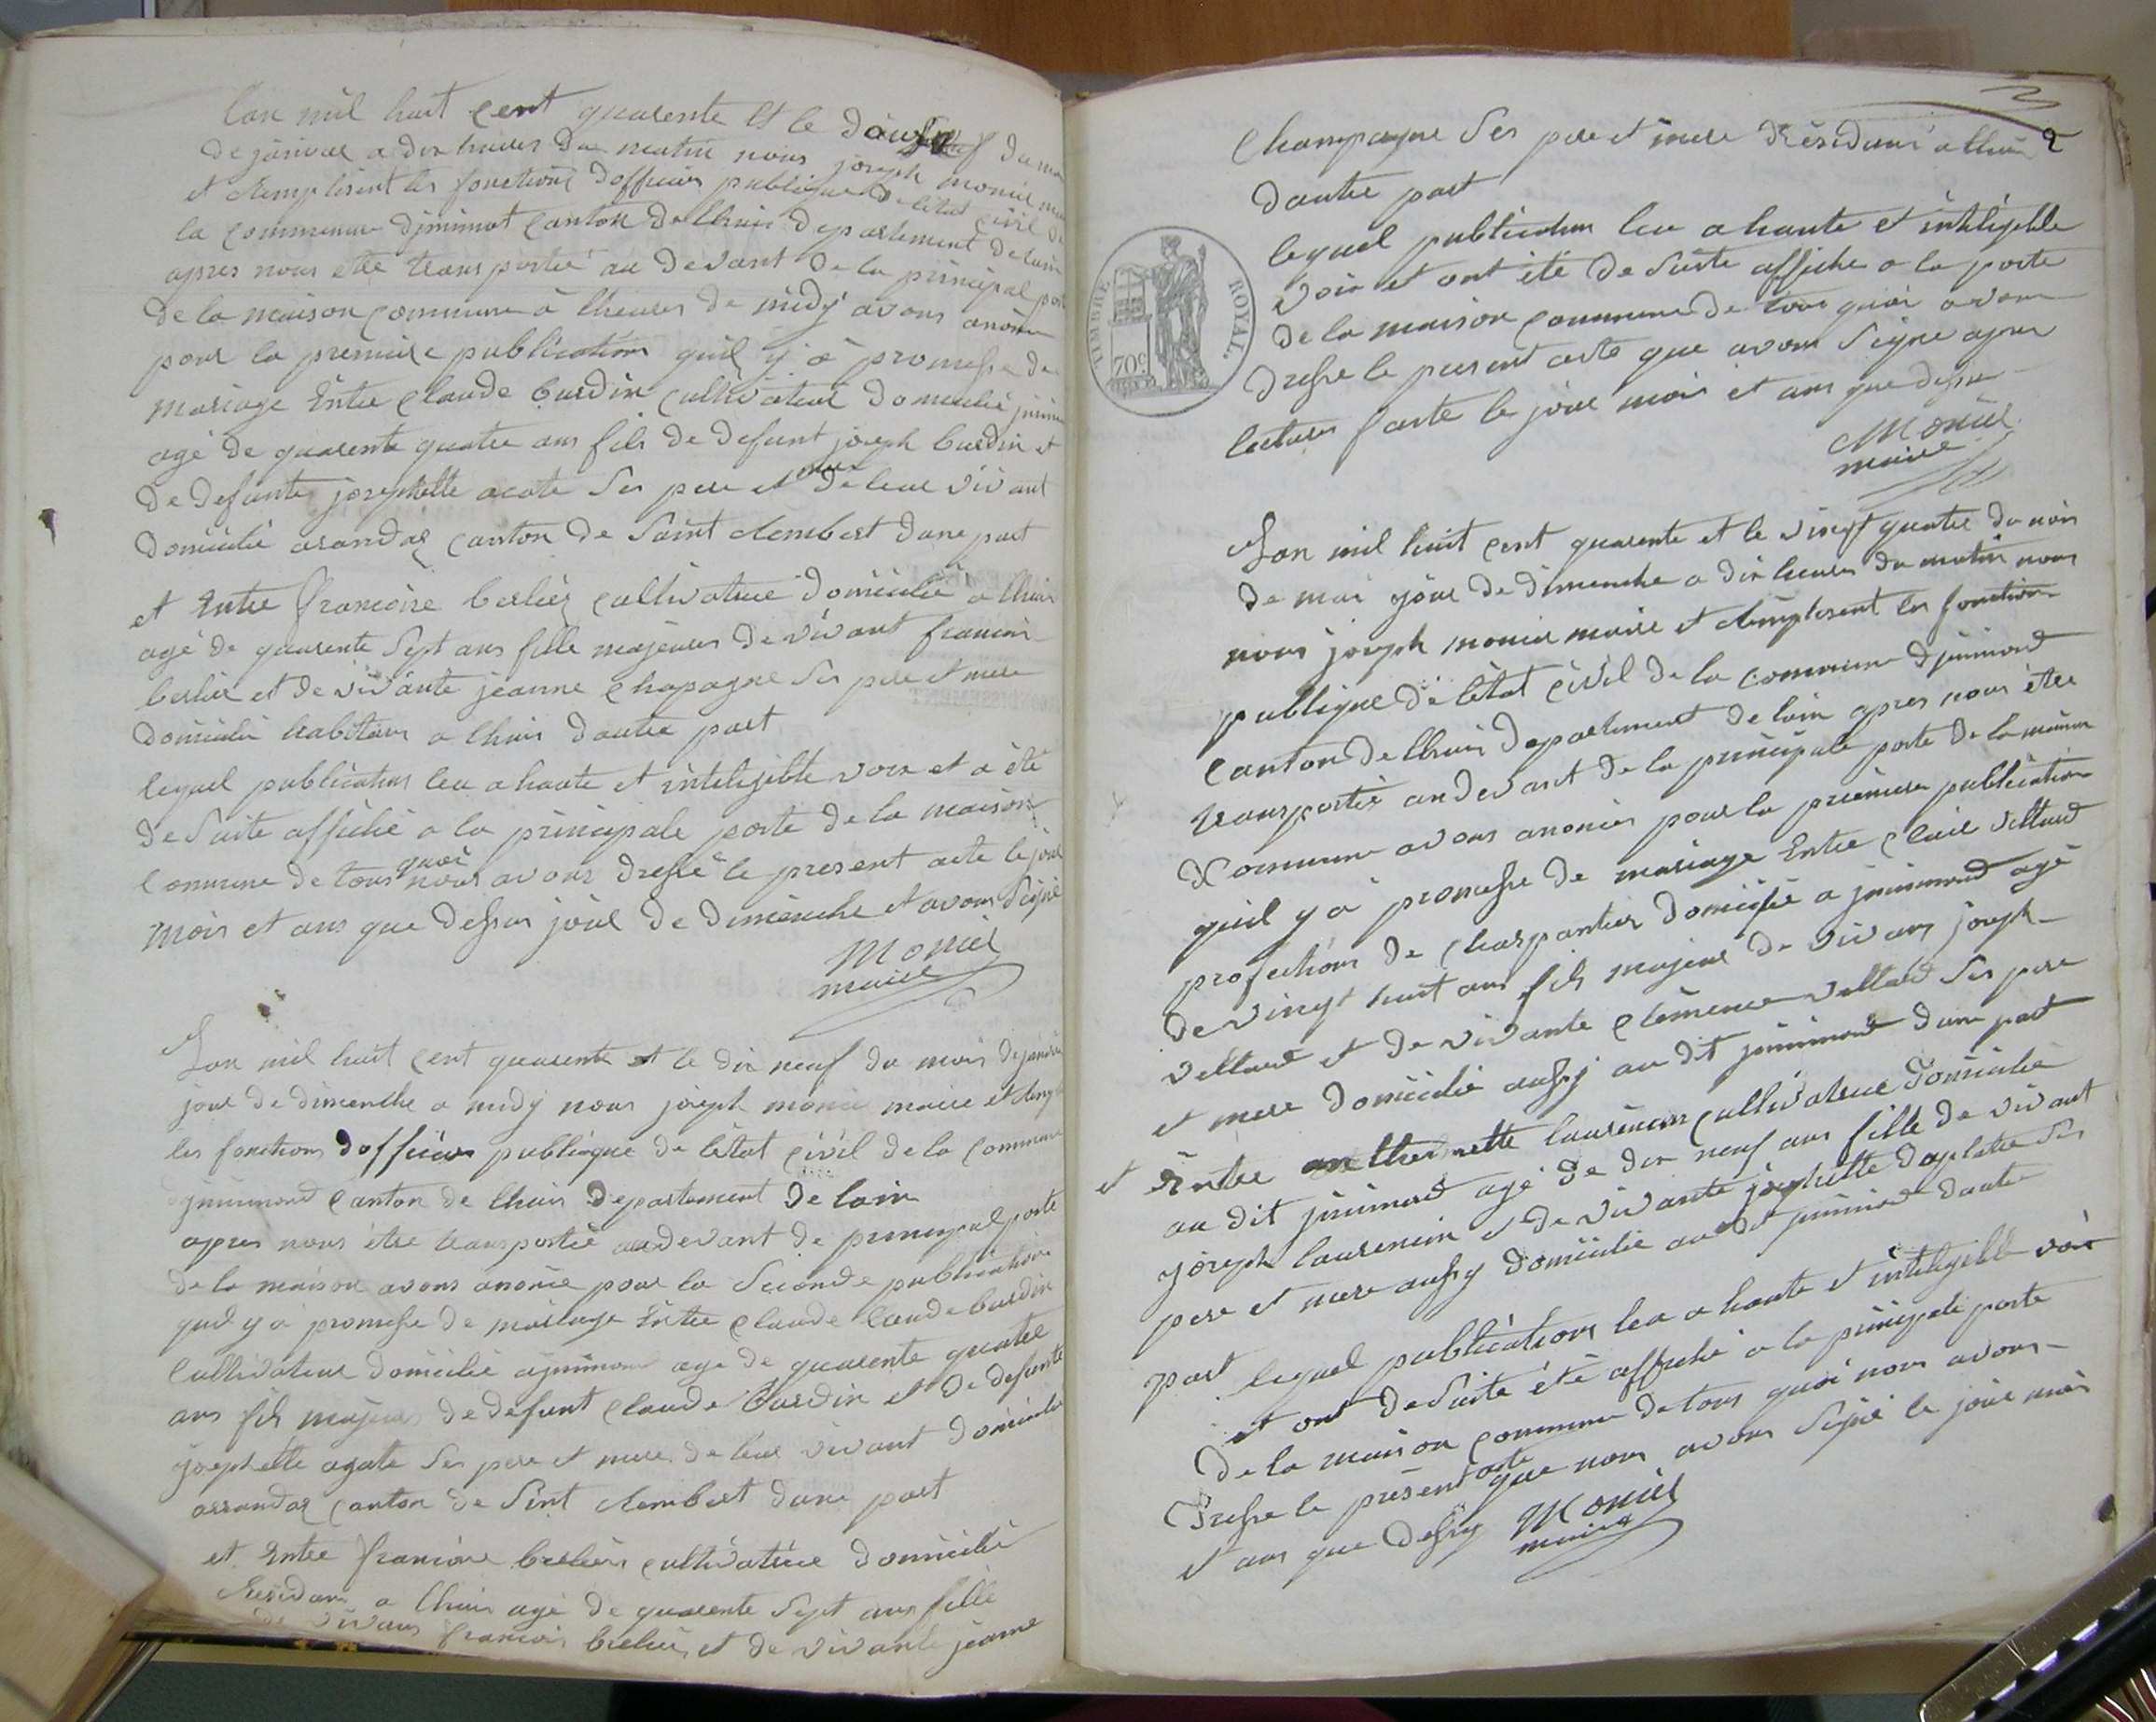 lan mil huit cent quarente et le douse du
de janvier a dix heures du matin nous joseph monier
et Remplisent les fonctions dofficier publique de létat civil
la commune djnimont canton de lhuis departement delain
apres nous etre transportér au devant de la principal
de la maison commune à lheures de midy avons anonce
pour la premiere publication quil y à promesse de
mariage Entre claude burdin cultivateur domicilié
agé de quarente quatre ans fils de defunt joseph burdin et
de defunte josephette acate ses pere et mere de leur vivant
domicilié arandas canton de saint Rembert dune part
et Entre francoise berlier cultivatrice domicilié à lhuis
agé de quarente sept ans fille majeure de vivant francois
berlier et de vivante jeanne chapagne ses pere et mere
domicilié habitans a lhuis dautre part
lequel publication leu a haute et inteligible voix et a été
de suite affiché a la principale porte de la maison
commune de tous quoi nous avons dressé le present acte le jour
mois et ans que dessus jour de dimenche et avons signé
Monier
maire
Lan mil huit cent quarente et le dix neuf du mois de janvier
jour de dimenche a midy nous joseph monier maire et
les fonctions dofficier publique de létat civil de la commune
djnimond canton de lhuis departement de lain
apres nous être transportée audevant de principal porte
de la maison avons anonce pour la seconde publication
quil y a promesse de mariage Entre claude claude burdin
cultivateur domicilié ajnimond agé de quarente quatre
ans fils majeur de defunt claude Burdin et de defunte
josephette agate ses pere et mere de leur vivant domicilié
arrandas canton de Sint Rembert dune part
et Entre francoise berlier cultivatrice domicilié
Residant a lhuis agé de quarente sept ans fille
de vivans francois berlier et de vivante jeanne
Champagne ses pere et mere Résidans a lhuis 2
dautre part
lequel publication leu a haute et inteligible
voix et ont été de suite affiché a la porte
de la maison commune de tous quoi avons
dresse le present acte que avons signe apres
lecture faite le jour mois et ans que dessus
Monier
maire
TIMBRE ROYAL
70c
Lan mil huit cent quarente et le vingt quatre du mois
de mai jour de dimenche a dix heures du matin nous
nous joseph monier maire et Remplisent les fonctions
publique de létat civil de la commune djnimond
canton de lhuis departement de lain apres nous être
transportér au devant de la principale porte de la maison
commune avons anoncer pour la premiere publication
quil y a promesse de mariage Entre claude vettard
profections de charpantier domicilié a jnnimond agé
de vingt huit ans fils majeur de vivans joseph
vettard et de vivante clemence vettard ses pere
et mere domicilié aussy au dit jnnimond dune part
et Entre anthemette laurencin cultivatrice domicilié
au dit jnnimond agé de dix neuf ans fille de vivant
joseph laurencin et de vivante josephette daplatre ses
pere et mere aussy domicilié audit jnnimond dautre
part lequel publication leu a haute et inteligible voix
et ont de suite été affiché a la principale porte
de la maison commune de tous quoi nous avons
dresse le present acte que nous avons signé le jour mois
et ans que dessus Monier
maire